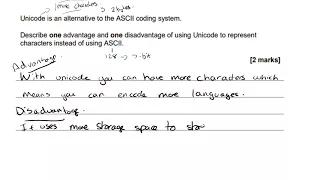 more characters → 2 bytes.
Unicode is an alternative to the ASCII coding system.
Describe one advantage and one disadvantage of using Unicode to represent
characters instead of using ASCII.
128 → 7-bit
[2 marks]
Advantage
With unicode you can have more characters which
means you can encode more languages.
Disadvantage
It uses more storage space to stor